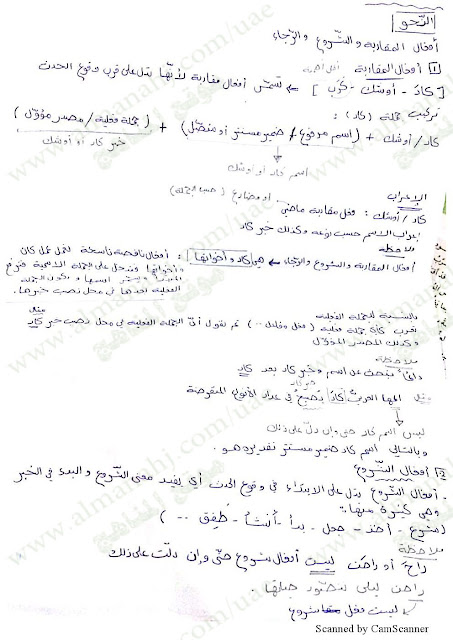 النّحو
أفعال المقاربة والشروع والرّجاء
1 أفعال المقاربة
[كاد - أوشك - كرب] ← تسمّى أفعال مقاربة لأنّها تدلّ على قرب وقوع الحدث
تركيب جملة (كاد) :
كاد / أوشك + (اسم مرفوع / ضمير مستتر أو متصل) + (جملة فعلية / مصدر مؤوّل)
اسم كاد أو أوشك
خبر كاد أو أوشك
الإعراب
أو مضارع (حسب الجملة)
كاد / أوشك : فعل مقاربة ماضي
إعراب الاسم حسب نوعه وكذلك خبر كاد
ملاحظة
أفعال المقاربة والشروع والرّجاء ← هي كاد وأخواتها : أفعال ناقصة ناسخة تعمل عمل كان
وأخواتها وتدخل على الجملة الاسمية فترفع
المبتدأ ويسمى اسمها وتكون الجملة
الفعلية بعدها في محل نصب خبرها.
بالنسبة للجملة الفعلية
نعرب كأي جملة فعلية (فعل وفاعل ...) ثم نقول أنّ الجملة الفعلية في محل نصب خبر كاد
وكذلك المصدر المؤوّل
ملاحظة
دائماً نبحث عن اسم وخبر كاد بعد كاد
مثل المها العربيّ كاد يصبح في عداد الأنواع المنقرضة
خبر كاد
ليس اسم كاد حتى وإن دلّ على ذلك
وبالتالي اسم كاد ضمير مستتر تقديره هو.
2 أفعال الشّروع
- أفعال الشروع تدل على الابتداء في وقوع الحدث أي تفيد معنى الشّروع والبدء في الخبر
وهي كثيرة منها:
(شرع - أخذ - جعل - بدأ - أنشأ - طفق ..)
ملاحظة
راح أو راحت ليست أفعال شروع حتّى وإن دلّت على ذلك
راحت ليلى
ليست فعل شروع
www.almanahj.com/uae
موقع المناهج
Scanned by CamScanner